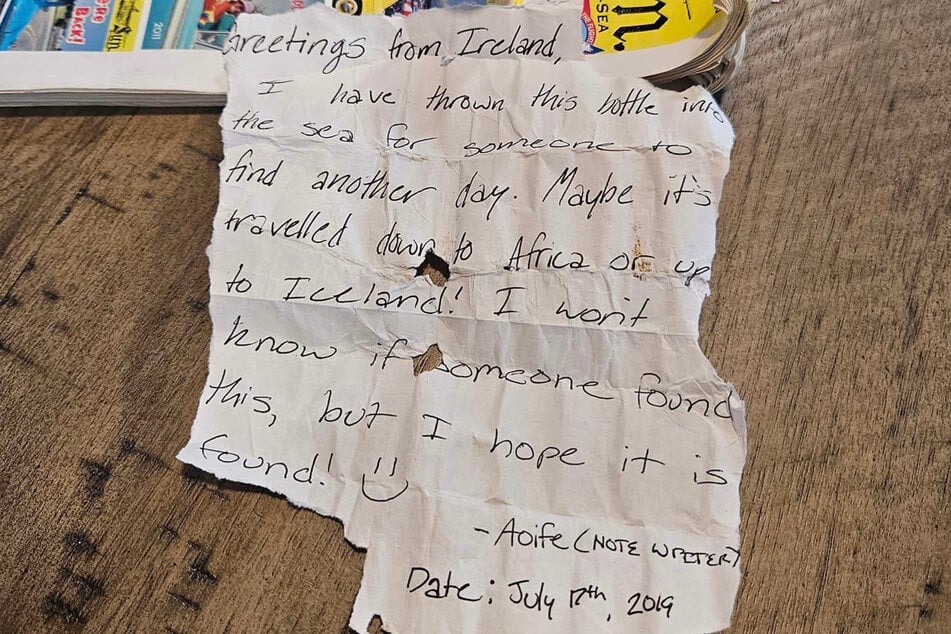 Back!
2011
SEA
m.
Greetings from Ireland,
I have thrown this bottle into
the sea for someone to
find another day. Maybe it's
travelled down to Africa or up
to Iceland! I won't
know if someone found
this, but I hope it is
found!
- Aoife (NOTE WRITER)
Date: July 17th, 2019